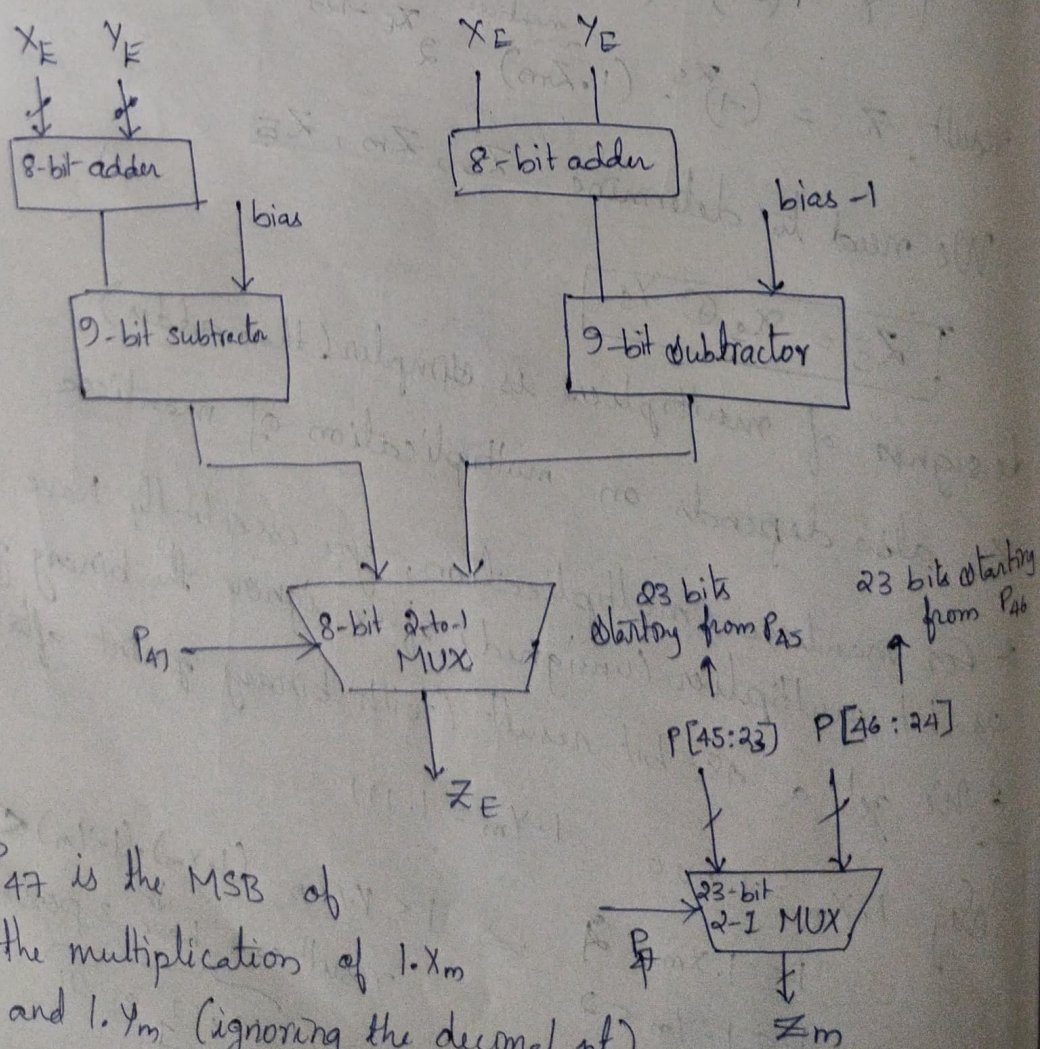 X_E Y_E
8-bit adder
bias
9-bit subtractor
X_E Y_E
8-bit adder
bias -1
9-bit subtractor
P47
8-bit 2-to-1
MUX
Z_E
23 bits
starting from P45
23 bits starting
from P46
P[45:23] P[46:24]
23-bit
2-1 MUX
Zm
47 is the MSB of
the multiplication of 1.Xm
and 1.Ym (ignoring the decimal pt)